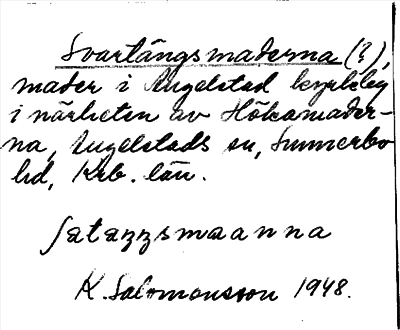 Svartängsmaderna (?),
mader i Angelstad kyrkby
i närheten av Hökamader-
na, Angelstads sn, Sunnerbo
hd, Krb. län.
K. Salomonsson 1948.